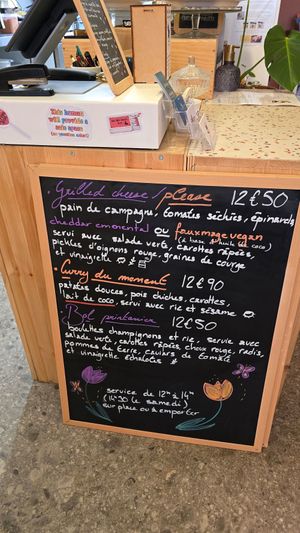 This human
will provide a
safe space
· Grilled cheese / please 12€50
pain de campagne, tomates séchées, épinards
cheddar emmental ou fauxmage vegan
(à base d'huile de coco)
servi avec salade verte, carottes râpées,
pickles d'oignons rouge, graines de courge
et vinaigrette
· Curry du moment 12€90
patates douces, pois chiches, carottes,
lait de coco, servi avec riz et sésame
· Bol printanier 12€50
boulettes champignons et riz, servie avec
salade verte, carottes râpées, choux rouge, radis,
pommes de terre, caviars de tomate
et vinaigrette échalotes
service de 12h à 14h
(14h30 le samedi)
sur place ou à emporter